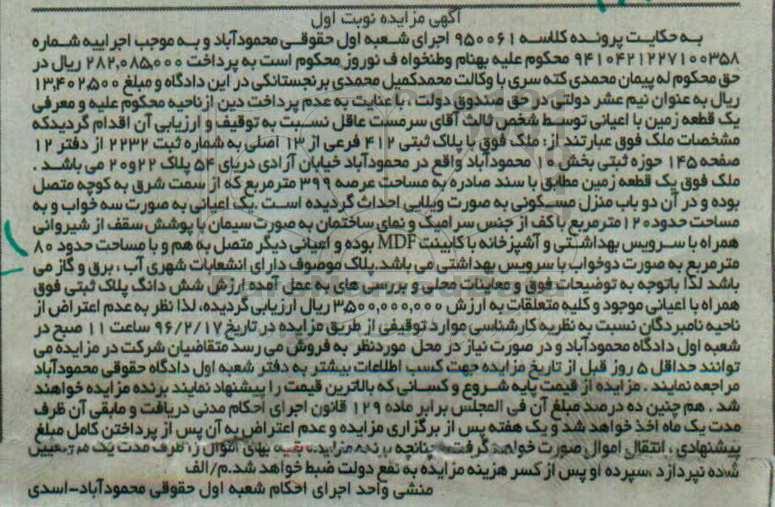 آگهی مزایده نوبت اول
به حکایت پرونده کلاسه ۹۵۰۰۶۱ اجرای شعبه اول حقوقی محمودآباد و به موجب اجراییه شماره
۹۴۱۰۴۲۱۲۲۷۱۰۰۳۵۸ محکوم علیه بهنام وطنخواه ف نوروز محکوم است به پرداخت ۲۸۲,۰۸۵,۰۰۰ ریال در
حق محکوم له پیمان محمدی کته سری با وکالت محمدکمیل محمدی برنجستانکی در این دادگاه و مبلغ ۱۳,۴۰۲,۵۰۰
ریال به عنوان نیم عشر دولتی در حق صندوق دولت ، با عنایت به عدم پرداخت دین از ناحیه محکوم علیه و معرفی
یک قطعه زمین با اعیانی توسط شخص ثالث آقای سرمست عاقل نسبت به توقیف و ارزیابی آن اقدام گردیدکه
مشخصات ملک فوق عبارتند از: ملک فوق با پلاک ثبتی ۴۱۲ فرعی از ۱۳ اصلی به شماره ثبت ۲۲۳۲ از دفتر ۱۲
صفحه ۱۴۵ حوزه ثبتی بخش ۱۰ محمودآباد واقع در محمودآباد خیابان آزادی دریای ۵۴ پلاک ۲۲و۲۰ می باشد .
ملک فوق یک قطعه زمین مطابق با سند صادره به مساحت عرصه ۳۹۹ مترمربع که از سمت شرق به کوچه متصل
بوده و در آن دو باب منزل مسکونی به صورت ویلایی احداث گردیده است .یک اعیانی به صورت سه خواب و به
مساحت حدود۱۲۰مترمربع با کف از جنس سرامیک و نمای ساختمان به صورت سیمان با پوشش سقف از شیروانی
همراه با سرویس بهداشتی و آشپزخانه با کابینت MDF بوده و اعیانی دیگر متصل به هم و با مساحت حدود ۸۰
مترمربع به صورت دوخواب با سرویس بهداشتی می باشد.پلاک موصوف دارای انشعابات شهری آب ، برق و گاز می
باشد لذا باتوجه به توضیحات فوق و معاینات محلی و بررسی های به عمل آمده ارزش شش دانگ پلاک ثبتی فوق
همراه با اعیانی موجود و کلیه متعلقات به ارزش ۳,۵۰۰,۰۰۰,۰۰۰ ریال ارزیابی گردیده، لذا نظر به عدم اعتراض از
ناحیه نامبردگان نسبت به نظریه کارشناسی موارد توقیفی از طریق مزایده در تاریخ ۹۶/۲/۱۷ ساعت ۱۱ صبح در
شعبه اول دادگاه محمودآباد و در صورت نیاز در محل موردنظر به فروش می رسد متقاضیان شرکت در مزایده می
توانند حداقل ۵ روز قبل از تاریخ مزایده جهت کسب اطلاعات بیشتر به دفتر شعبه اول دادگاه حقوقی محمودآباد
مراجعه نمایند . مزایده از قیمت پایه شروع و کسانی که بالاترین قیمت را پیشنهاد نمایند برنده مزایده خواهند
شد . هم چنین ده درصد مبلغ آن فی المجلس برابر ماده ۱۲۹ قانون اجرای احکام مدنی دریافت و مابقی آن ظرف
مدت یک ماه اخذ خواهد شد و یک هفته پس از برگزاری مزایده و عدم اعتراض به آن پس از پرداختن کامل مبلغ
پیشنهادی ، انتقال اموال صورت خواهد گرفت، چنانچه برنده مزایده بقیه بهای اموال را ظرف مدت یک ماه تعیین
شده نپردازد ،سپرده او پس از کسر هزینه مزایده به نفع دولت ضبط خواهد شد.م/الف
منشی واحد اجرای احکام شعبه اول حقوقی محمودآباد-اسدی